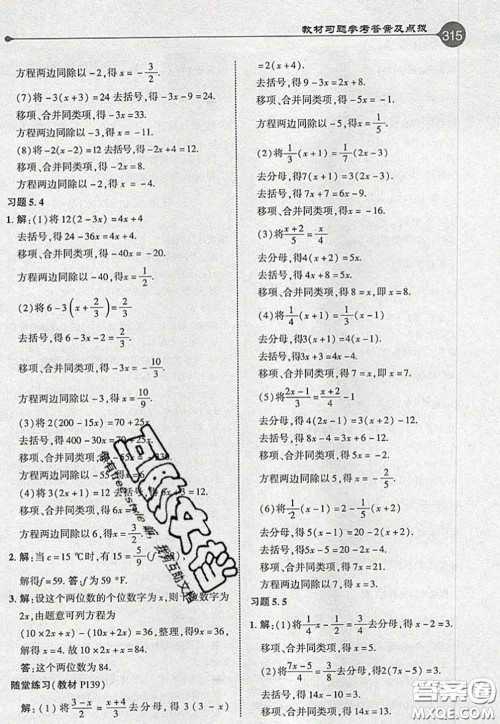 教材习题参考答案及点拨 315
方程两边同除以-2,得x=-3/2.
(7)将-3(x+3)=24 去括号,得-3x-9=24.
移项、合并同类项,得-3x=33.
方程两边同除以-3,得x=-11.
(8)将-2(x-2)=12 去括号,得-2x+4=12.
移项、合并同类项,得-2x=8.
方程两边同除以-2,得x=-4.
习题5.4
1.解:(1)将12(2-3x)=4x+4
去括号,得24-36x=4x+4.
移项、合并同类项,得-40x=-20.
方程两边同除以-40,得x=1/2.
(2)将6-3(x+2/3)=2/3
去括号,得6-3x-2=2/3.
移项、合并同类项,得-3x=-10/3.
方程两边同除以-3,得x=10/9.
(3)将2(200-15x)=70+25x
去括号,得400-30x=70+25x.
移项、合并同类项,得-55x=
方程两边同除以-55,得x=6.
(4)将3(2x+1)=12 去括号,得6x+3=12.
移项、合并同类项,得6x=9.
方程两边同除以6,得x=3/2.
2.解:当c=15 ℃时,有15=5/9
解得f=59. 答:为59 °F.
3.解:设这个两位数的个位数字为x,则十位数字为
2x,由题意可列方程为
(10×2x+x)-(10x+2x)=36. 解得9x=36,
解得x=4. 故2x=2×4=8.
答:这个两位数为84.
随堂练习(教材P139)
解:(1)将(3-x)/2=(x+4)/3 去分母,得3(3-x)
=2(x+4).去括号,得9-3x=2x+8.
移项、合并同类项,得-5x=-1.
方程两边同除以-5,得x=1/5.
(2)将1/3(x+1)=1/7(2x-3)
去分母,得7(x+1)=3(2x-3).
去括号,得7x+7=6x-9.
移项、合并同类项,得x=-16.
(3)将(x+2)/5=x/4
去分母,得4(x+2)=5x.
去括号,得4x+8=5x.
移项、合并同类项,得-x=-8,即x=8.
(4)将1/4(x+1)=1/3(x-1)
去分母,得3(x+1)=4(x-1).
去括号,得3x+3=4x-4.
移项、合并同类项,得-x=-7,即x=7.
(5)将(2x-1)/3=(x+2)/4-1
去分母,得4(2x-1)=3(x+2)-12.
去括号,得8x-4=3x+6-12.
移项、合并同类项,得5x=-2.
方程两边同除以5,得x=-2/5.
(6)将1/2(x-1)=2-1/5(x+2)
去分母,得5(x-1)=20-2(x+2).
去括号,得5x-5=20-2x-4.
移项、合并同类项,得7x=21.
方程两边同除以7,得x=3.
习题5.5
1.解:(1)将1/4x-1/2=3/4去分母,得x-2=3.
移项、合并同类项,得x=5.
(2)将(7x-5)/4=3/8去分母,得2(7x-5)=3.
去括号,得14x-10=3.
答案圈
MXQE.COM